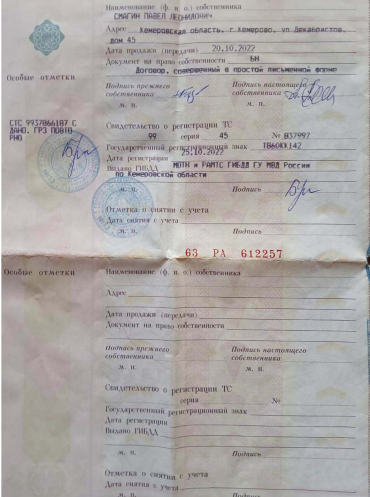 Наименование (ф. и. о.) собственника
СМАГИН ПАВЕЛ ЛЕОНИДОВИЧ
Адрес Кемеровская область, г.Кемерово, ул Декабристов,
дом 45
Дата продажи (передачи) 20.10.2022
Документ на право собственности БН
Договор, совершенный в простой письменной форме
Особые отметки
Подпись прежнего собственника
Подпись настоящего собственника
м. п.
м. п.
СТС 9937066187 С
ДАНО. ГРЗ ПОВТО
РНО
Свидетельство о регистрации ТС
99 серия 45 № 037997
Государственный регистрационный знак
Дата регистрации 25.10.2022
Выдано ГИБДД МОТН и РАМТС ГИБДД ГУ МВД России
по Кемеровской области
м. п.
Подпись
Отметка о снятии с учета
Дата снятия с учета
м. п.
Подпись
63 РА 612257
Особые отметки
Наименование (ф. и. о.) собственника
Адрес
Дата продажи (передачи)
Документ на право собственности
Подпись прежнего собственника
Подпись настоящего собственника
м. п.
м. п.
Свидетельство о регистрации ТС
серия №
Государственный регистрационный знак
Дата регистрации
Выдано ГИБДД
м. п.
Подпись
Отметка о снятии с учета
Дата снятия с учета
м. п.
Подпись